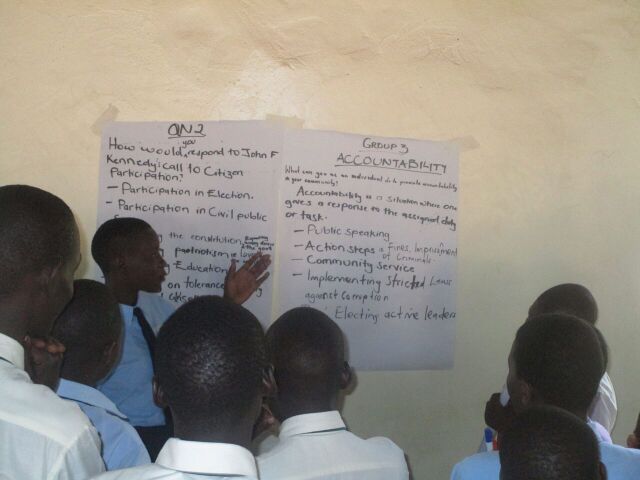 QN2
How would you respond to John F
Kennedy's call to Citizen
Participation?
- Participation in Election.
- Participation in Civil public
the constitution
patriotism is love
Education
on tolerance
GROUP 3
ACCOUNTABILITY
What can you as an individual do to promote accountability
in your community?
Accountability is a situation where one
gives a response to the assigned duty
or task.
- Public speaking
- Action steps ie Fines, Imprisonment
of Criminals.
- Community Service
- Implementing Stricted Laws
against Corruption
Electing active leaders